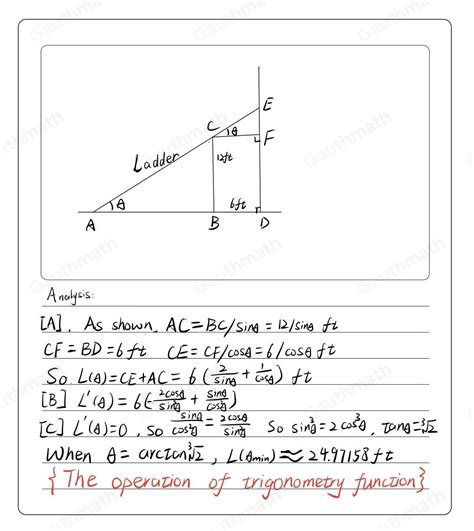 E
C
θ
F
Ladder
12ft
θ
6ft
A
B
D
Analysis:
[A]. As shown, AC=BC/sinθ = 12/sinθ ft
CF=BD=6ft CE=CF/cosθ=6/cosθ ft
So L(θ)=CE+AC= 6(2/sinθ + 1/cosθ) ft
[B] L'(θ) = 6(-2cosθ/sin²θ + sinθ/cos²θ)
[C] L'(θ)=0, So sinθ/cos²θ = 2cosθ/sin²θ So sin³θ=2cos³θ, tanθ=∛2
When θ= arctan∛2, L(θmin)≈24.97158ft
{The operation of trigonometry function}
Gauthmath